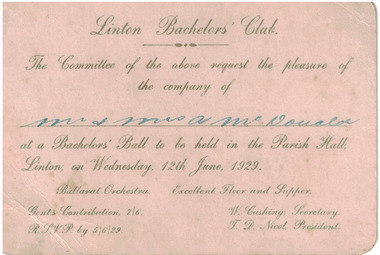 Linton Bachelors' Club.
The Committee of the above request the pleasure of
the company of
Mr & Mrs A McDonald
at a Bachelors' Ball to be held in the Parish Hall,
Linton, on Wednesday, 12th June, 1929.
Ballarat Orchestra. Excellent Floor and Supper.
Gent's Contribution, 7/6. W. Cushing, Secretary.
R.S.V.P. by 5/6/29. T. D. Nicol, President.